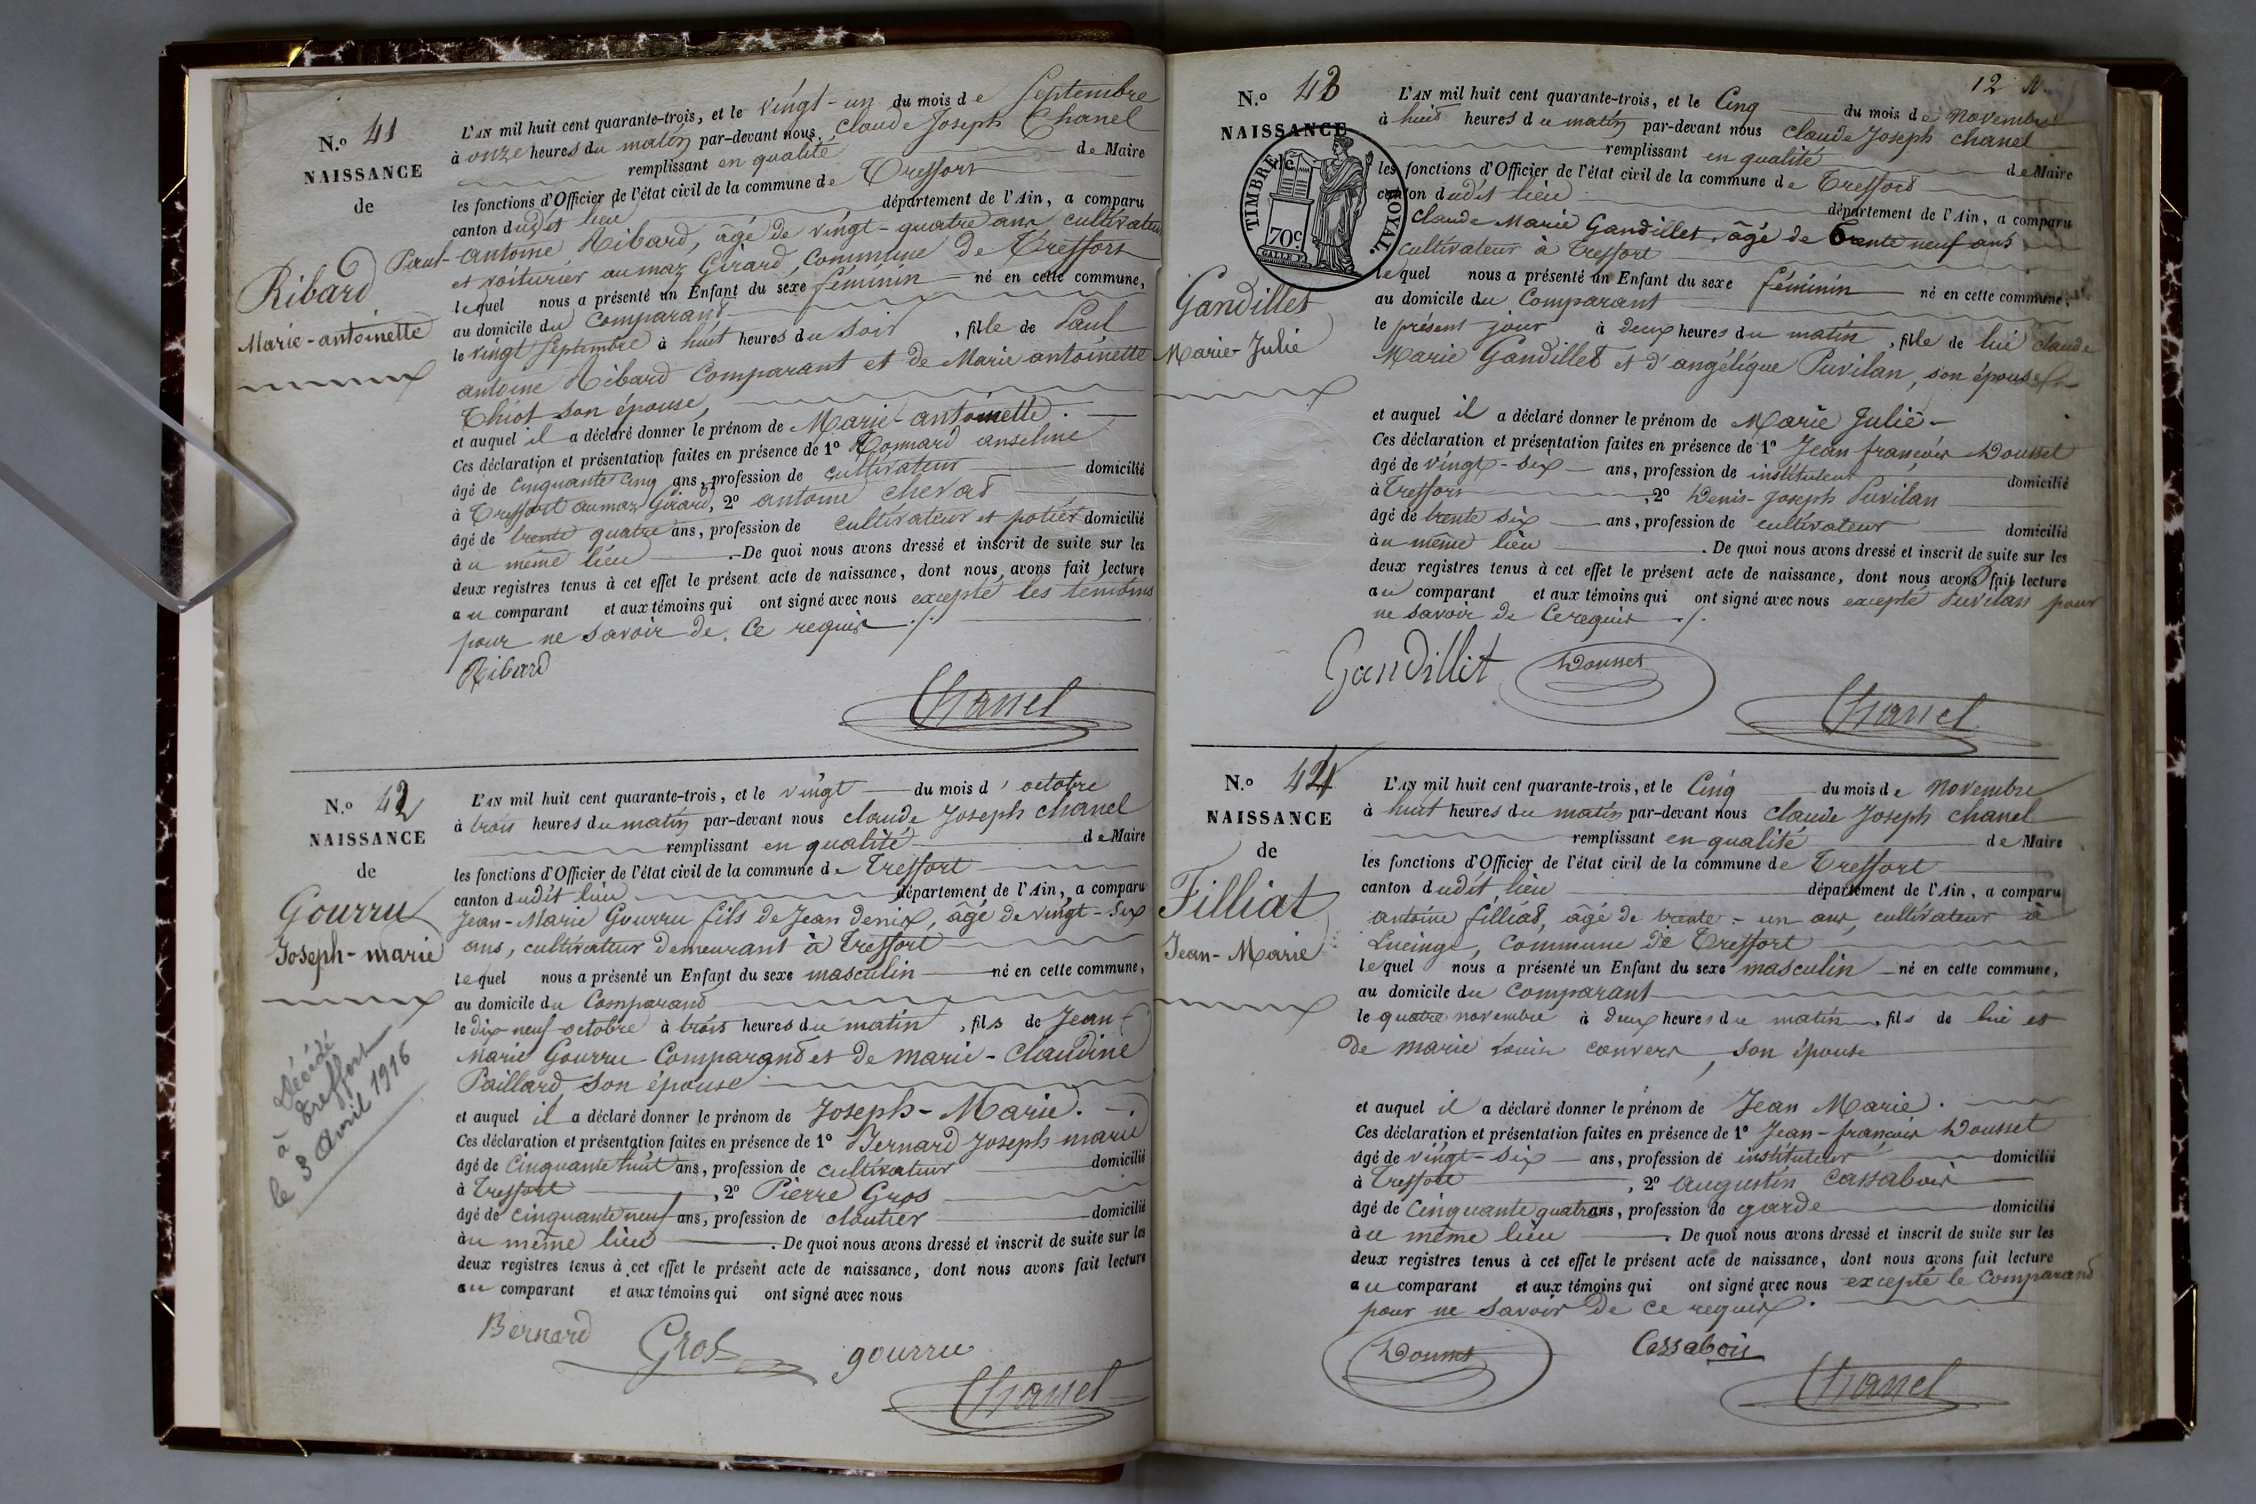 N.o 41
NAISSANCE
de
Ribard
Marie-antoinette
L'AN mil huit cent quarante-trois, et le vingt-un du mois de Septembre
à onze heures du matin par-devant nous claude Joseph Chanel
remplissant en qualité de Maire
les fonctions d'Officier de l'état civil de la commune de Treffort
canton dudit lieu département de l'Ain, a comparu
Paul-antoine Ribard, âgé de vingt-quatre ans cultivateur
et voiturier au maz Girard, commune de Treffort
lequel nous a présenté un Enfant du sexe féminin né en cette commune,
au domicile du Comparant
le vingt Septembre à huit heures du soir, fille de Paul
antoine Ribard comparant et de Marie antoinette
Thiot son épouse,
et auquel il a déclaré donner le prénom de Marie-antoinette.
Ces déclaration et présentation faites en présence de 1o anselme
âgé de cinquante cinq ans, profession de cultivateur domicilié
à Treffort au maz Girard, 2o antoine chevat
âgé de trente quatre ans, profession de cultivateur et potier domicilié
à u même lieu . De quoi nous avons dressé et inscrit de suite sur les
deux registres tenus à cet effet le présent acte de naissance, dont nous avons fait lecture
au comparant et aux témoins qui ont signé avec nous excepté les temoins
pour ne savoir de ce requis ./.
Ribard
Chanel
N.o 42
NAISSANCE
de
Gourru
Joseph-marie
Décédé
à Treffort
le 3 avril 1916
L'AN mil huit cent quarante-trois, et le vingt du mois d'octobre
à trois heures du matin par-devant nous claude Joseph chanel
remplissant en qualité de Maire
les fonctions d'Officier de l'état civil de la commune de Treffort
canton dudit lieu département de l'Ain, a comparu
Jean-Marie Gourru fils de Jean denis, âgé de vingt-six
ans, cultivateur demeurant à Treffort
lequel nous a présenté un Enfant du sexe masculin né en cette commune,
au domicile du Comparant
le dix neuf octobre à trois heures du matin, fils de Jean
Marie Gourru Comparant et de marie-Claudine
Paillard, son épouse
et auquel il a déclaré donner le prénom de Joseph-Marie.
Ces déclaration et présentation faites en présence de 1o Bernard Joseph marie
âgé de cinquante huit ans, profession de cultivateur domicilié
à Treffort, 2o Pierre Gros
âgé de cinquante neuf ans, profession de cloutier domicilié
à u même lieu . De quoi nous avons dressé et inscrit de suite sur les
deux registres tenus à cet effet le présent acte de naissance, dont nous avons fait lecture
au comparant et aux témoins qui ont signé avec nous
Bernard Gros gourru
Chanel
12
N.o 43
NAISSANCE
TIMBRE ROYAL.
1c.
70c
Gandillet
Marie-Julie
L'AN mil huit cent quarante-trois, et le Cinq du mois de Novembre
à huit heures du matin par-devant nous claude Joseph chanel
remplissant en qualité de Maire
les fonctions d'Officier de l'état civil de la commune de Treffort
canton dudit lieu département de l'Ain, a comparu
claude Marie Gandillet, âgé de trente neuf ans
cultivateur à Treffort
lequel nous a présenté un Enfant du sexe féminin né en cette commune,
au domicile du Comparant
le présent jour à deux heures du matin, fille de lui claude
Marie Gandillet et d'angélique Puvilan, son épouse
et auquel il a déclaré donner le prénom de Marie Julie
Ces déclaration et présentation faites en présence de 1o Jean françois Dousset
âgé de vingt-six ans, profession de instituteur domicilié
à Treffort, 2o Denis-Joseph Puvilan
âgé de trente six ans, profession de cultivateur domicilié
à u même lieu . De quoi nous avons dressé et inscrit de suite sur les
deux registres tenus à cet effet le présent acte de naissance, dont nous avons fait lecture
au comparant et aux témoins qui ont signé avec nous excepté Puvilan pour
ne savoir de ce requis ./.
Gandillit Dousset
Chanel
N.o 44
NAISSANCE
de
Filliat
Jean-Marie
L'AN mil huit cent quarante-trois, et le Cinq du mois de Novembre
à huit heures du matin par-devant nous claude Joseph chanel
remplissant en qualité de Maire
les fonctions d'Officier de l'état civil de la commune de Treffort
canton dudit lieu département de l'Ain, a comparu
antoine filliat, âgé de trente-un ans, cultivateur à
Lucinge, commune de Treffort
lequel nous a présenté un Enfant du sexe masculin né en cette commune,
au domicile du comparant
le quatre novembre à deux heures du matin, fils de lui et
de marie Louise convers, son épouse
et auquel il a déclaré donner le prénom de Jean Marie.
Ces déclaration et présentation faites en présence de 1o Jean-françois Dousset
âgé de vingt-six ans, profession de instituteur domicilié
à Treffort, 2o augustin Cassabois
âgé de Cinquante quatre ans, profession de garde domicilié
à u même lieu . De quoi nous avons dressé et inscrit de suite sur les
deux registres tenus à cet effet le présent acte de naissance, dont nous avons fait lecture
au comparant et aux témoins qui ont signé avec nous excepté le comparant
pour ne savoir de ce requis.
Dousset Cassaboii
Chanel